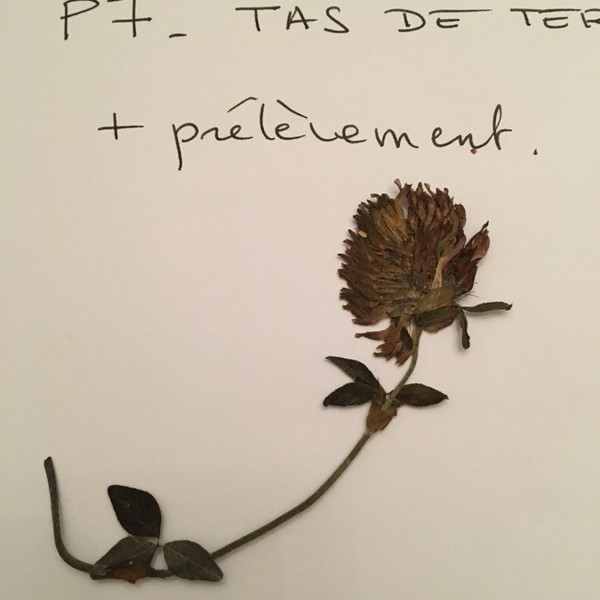 P7_ TAS DE TER
+ prélèvement.